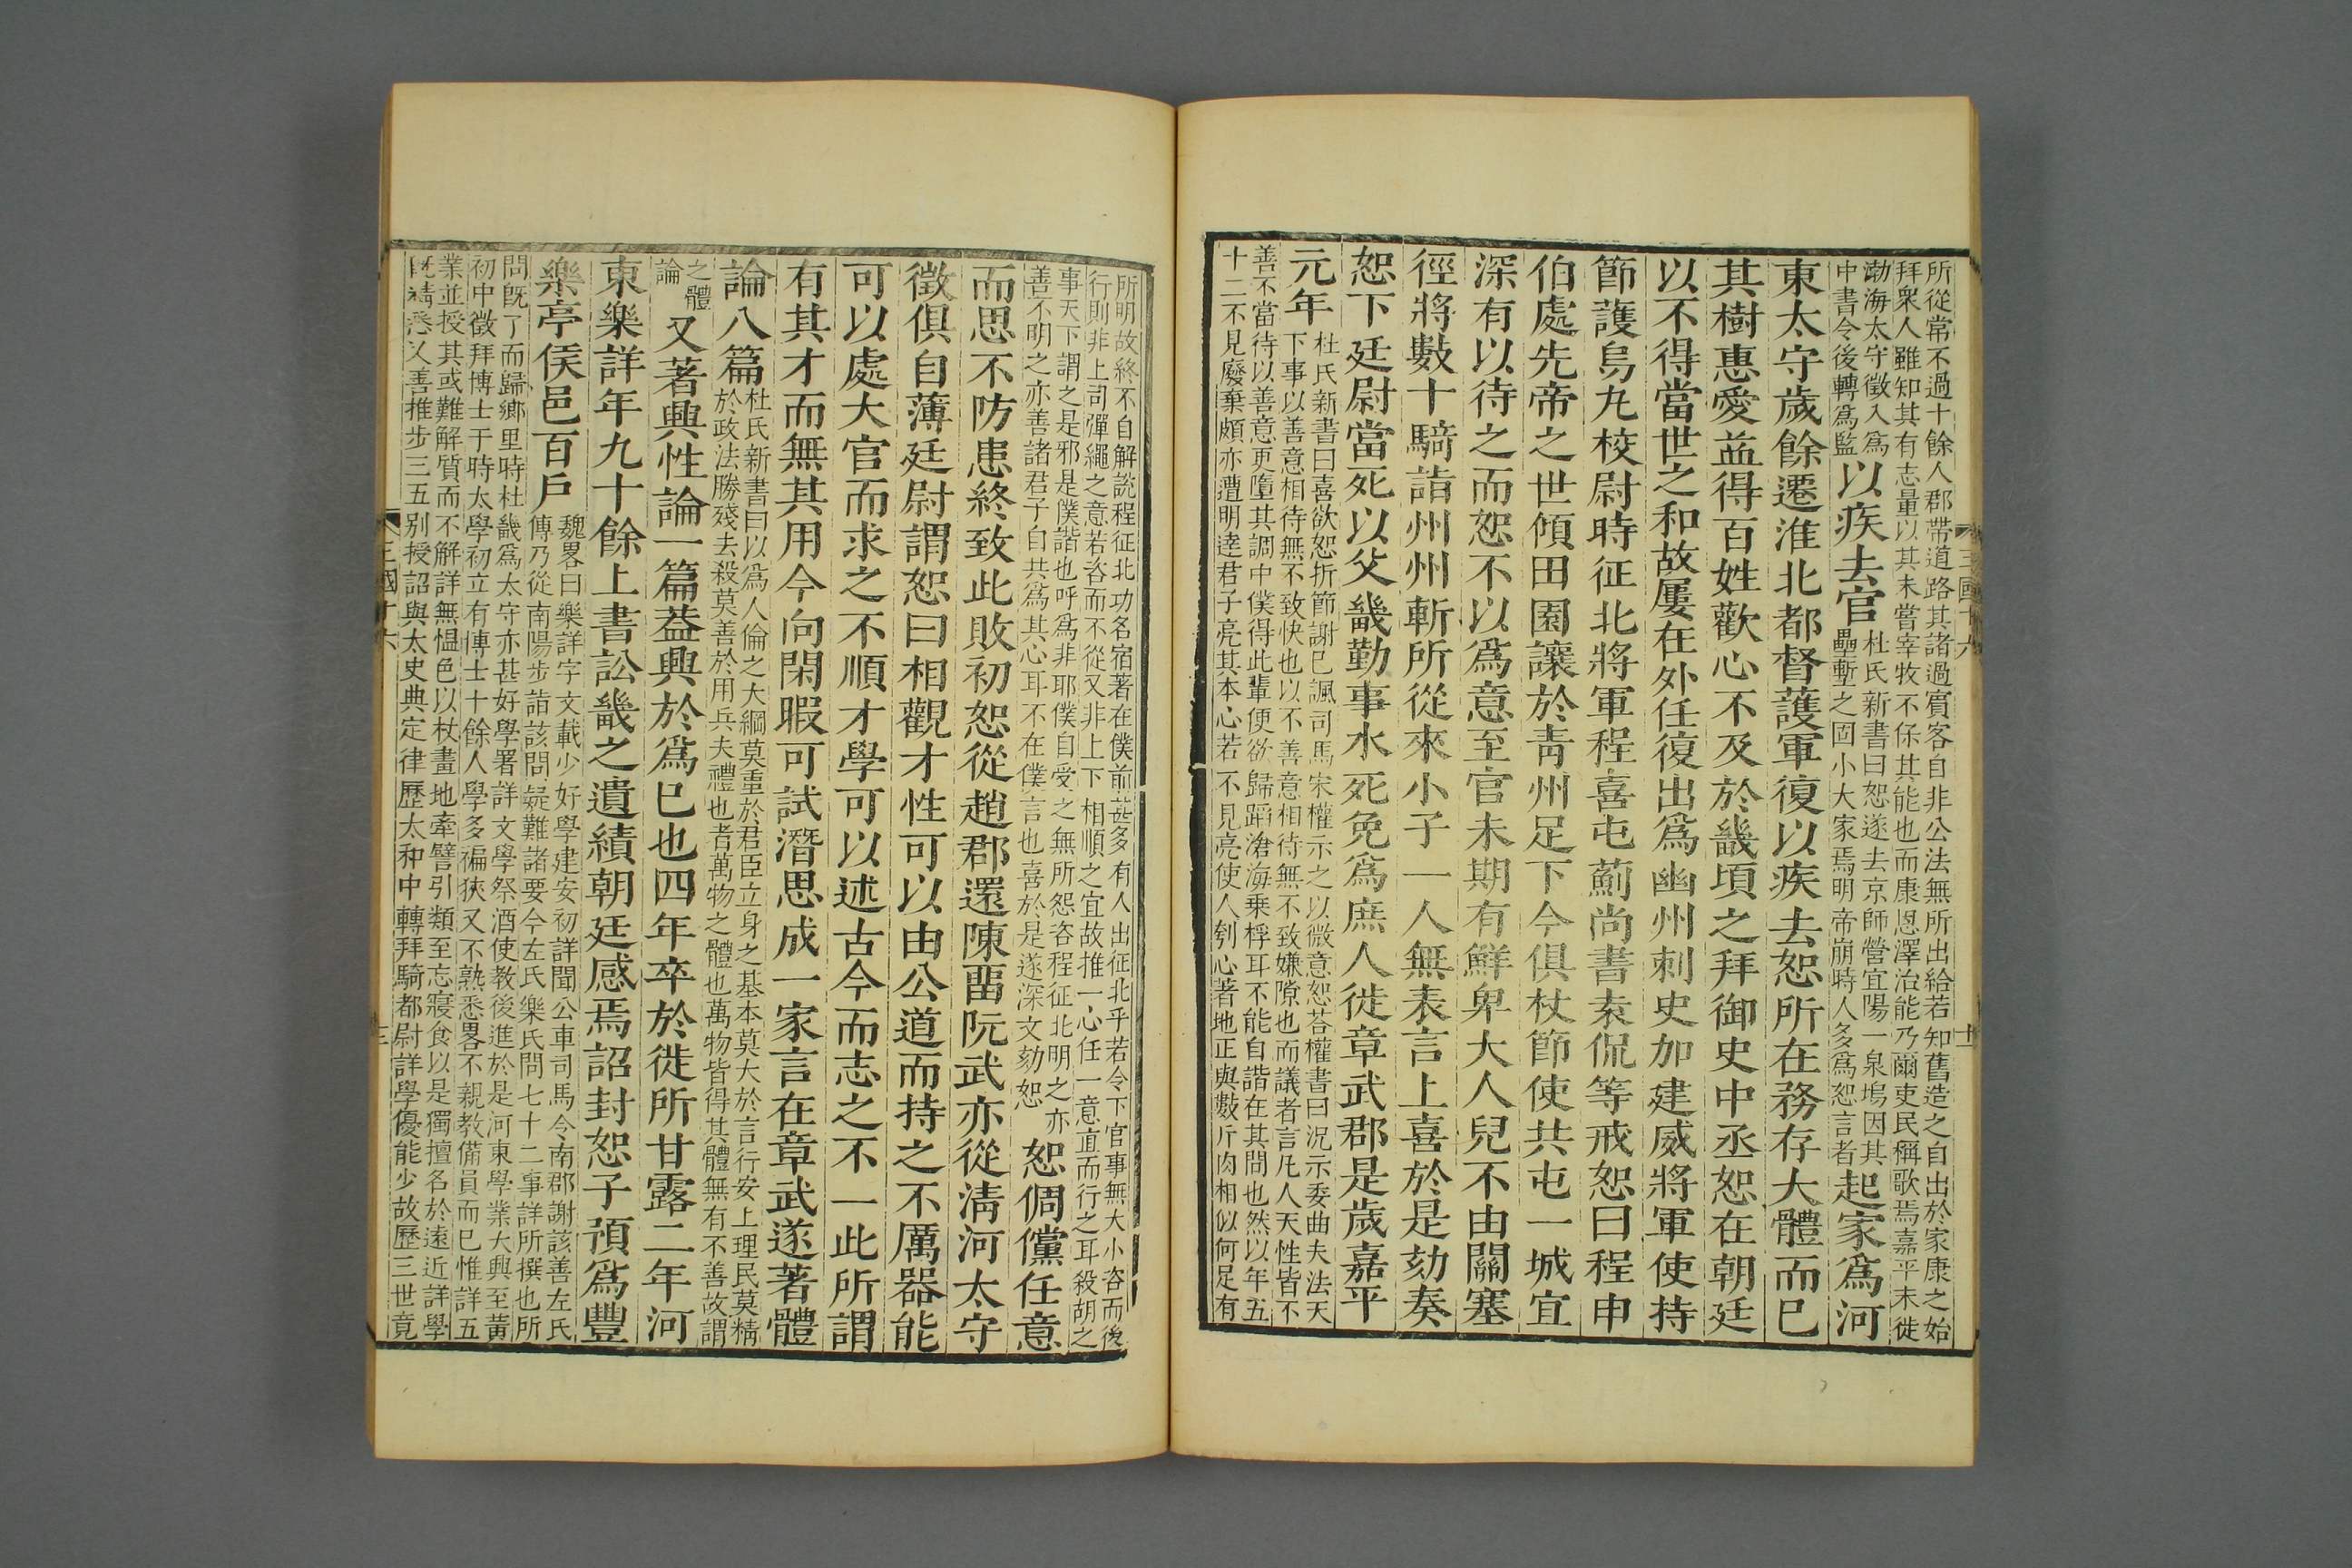 所從常不過十餘人郡帶道路其諸過賓客自非公法無所出給若知舊造之自出於家康之始
拜衆人雖知其有志量以其未嘗宰牧不係其能也而康恩澤治能乃爾吏民稱歌焉嘉平末徙
渤海太守徵入爲
中書令後轉爲監
以疾去官
杜氏新書曰恕遂去京師營宜陽一泉塢因其
壘塹之固小大家焉明帝崩時人多爲恕言者
起家爲河
東太守歲餘遷淮北都督護軍復以疾去恕所在務存大體而已
其樹惠愛益得百姓歡心不及於畿頃之拜御史中丞恕在朝廷
以不得當世之和故屢在外任復出爲幽州刺史加建威將軍使持
節護烏丸校尉時征北將軍程喜屯薊尚書袁侃等戒恕曰程申
伯處先帝之世傾田園讓於靑州足下今俱杖節使共屯一城宜
深有以待之而恕不以爲意至官未期有鮮卑大人兒不由關塞
徑將數十騎詣州州斬所從來小子一人無表言上喜於是劾奏
恕下廷尉當死以父畿勤事水死免爲庶人徙章武郡是歲嘉平
元年
杜氏新書曰喜欲恕折節謝已諷司馬宋權示之以微意恕荅權書曰況示委曲夫法天
下事以善意相待無不致快也以不善意相待無不致嫌隙也而議者言凡人天性皆不
善不當待以善意更墮其調中僕得此輩便欲歸蹈滄海乗桴耳不能自諧在其間也然以年五
十二不見廢棄頗亦遭明逹君子亮其本心若不見亮使人刳心著地正與數斤肉相似何足有
所明故終不自解說程征北功名宿著在僕前甚多有人出征北乎若令下官事無大小咨而後
行則非上司彈繩之意若咨而不從又非上下相順之宜故推一心任一意直而行之耳殺胡之
事天下謂之是邪是僕諧也呼爲非耶僕自受之無所怨咨程征北明之亦
善不明之亦善諸君子自共爲其心耳不在僕言也喜於是遂深文劾恕
恕倜儻任意
而思不防患終致此敗初恕從趙郡還陳畱阮武亦從淸河太守
徵俱自薄廷尉謂恕曰相觀才性可以由公道而持之不厲器能
可以處大官而求之不順才學可以述古今而志之不一此所謂
有其才而無其用今向閑暇可試潛思成一家言在章武遂著體
論八篇
杜氏新書曰以爲人倫之大綱莫重於君臣立身之基本莫大於言行安上理民莫精
於政法勝殘去殺莫善於用兵夫禮也者萬物之體也萬物皆得其體無有不善故謂
之體
論
又著興性論一篇葢興於爲已也四年卒於徙所甘露二年河
東樂詳年九十餘上書訟畿之遺績朝廷感焉詔封恕子預爲豐
樂亭侯邑百戶
魏畧曰樂詳字文載少好學建安初詳聞公車司馬令南郡謝該善左氏
傳乃從南陽步詣該問疑難諸要今左氏樂氏問七十二事詳所撰也所
問旣了而歸鄉里時杜畿爲太守亦甚好學署詳文學祭酒使教後進於是河東學業大興至黃
初中徵拜博士于時太學初立有博士十餘人學多褊狹又不熟悉畧不親教備員而已惟詳五
業並授其或難解質而不解詳無愠色以杖畫地牽譬引類至忘寢食以是獨擅名於遠近詳學
旣精悉又善推步三五別授詔與太史典定律歷太和中轉拜騎都尉詳學優能少故歷三世竟
三國十六
十二